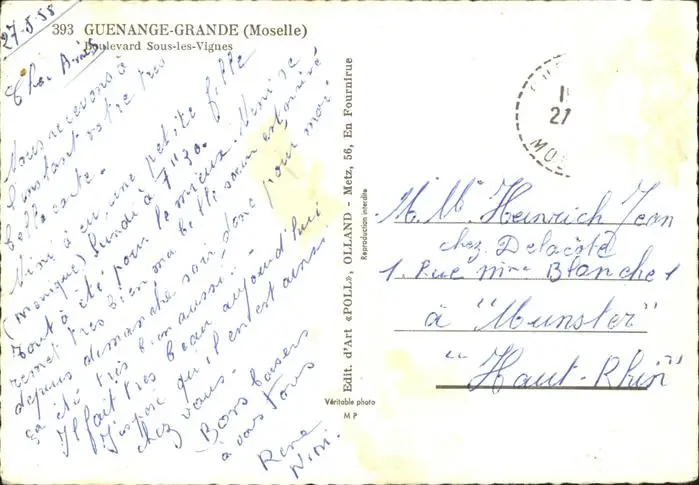 27-5-58
393 GUENANGE-GRANDE (Moselle)
Boulevard Sous-les-Vignes
Chers Amis
Nous recevons à
l'instant votre très
belle carte.
Nini à eu une petite fille
(monique) lundi à 7H30.
tout à été pour le mieux. Nini se
remet très bien ma belle sœur est arrivé
depuis dimanche soir donc pour moi
ça été très bien aussi.
Il fait très beau aujourd'hui
J'espère qu'il en est ainsi
chez vous.
Bons baisers
à vous tous
René
Nini.
Edit. d'Art «POLL», OLLAND - Metz, 56, En Fournirue
Reproduction interdite
Véritable photo
M P
27
MO
M. Mme Heinrich Jean
chez Delacôte
1. Rue Mme Blanche 1
à "Munster"
"Haut-Rhin"